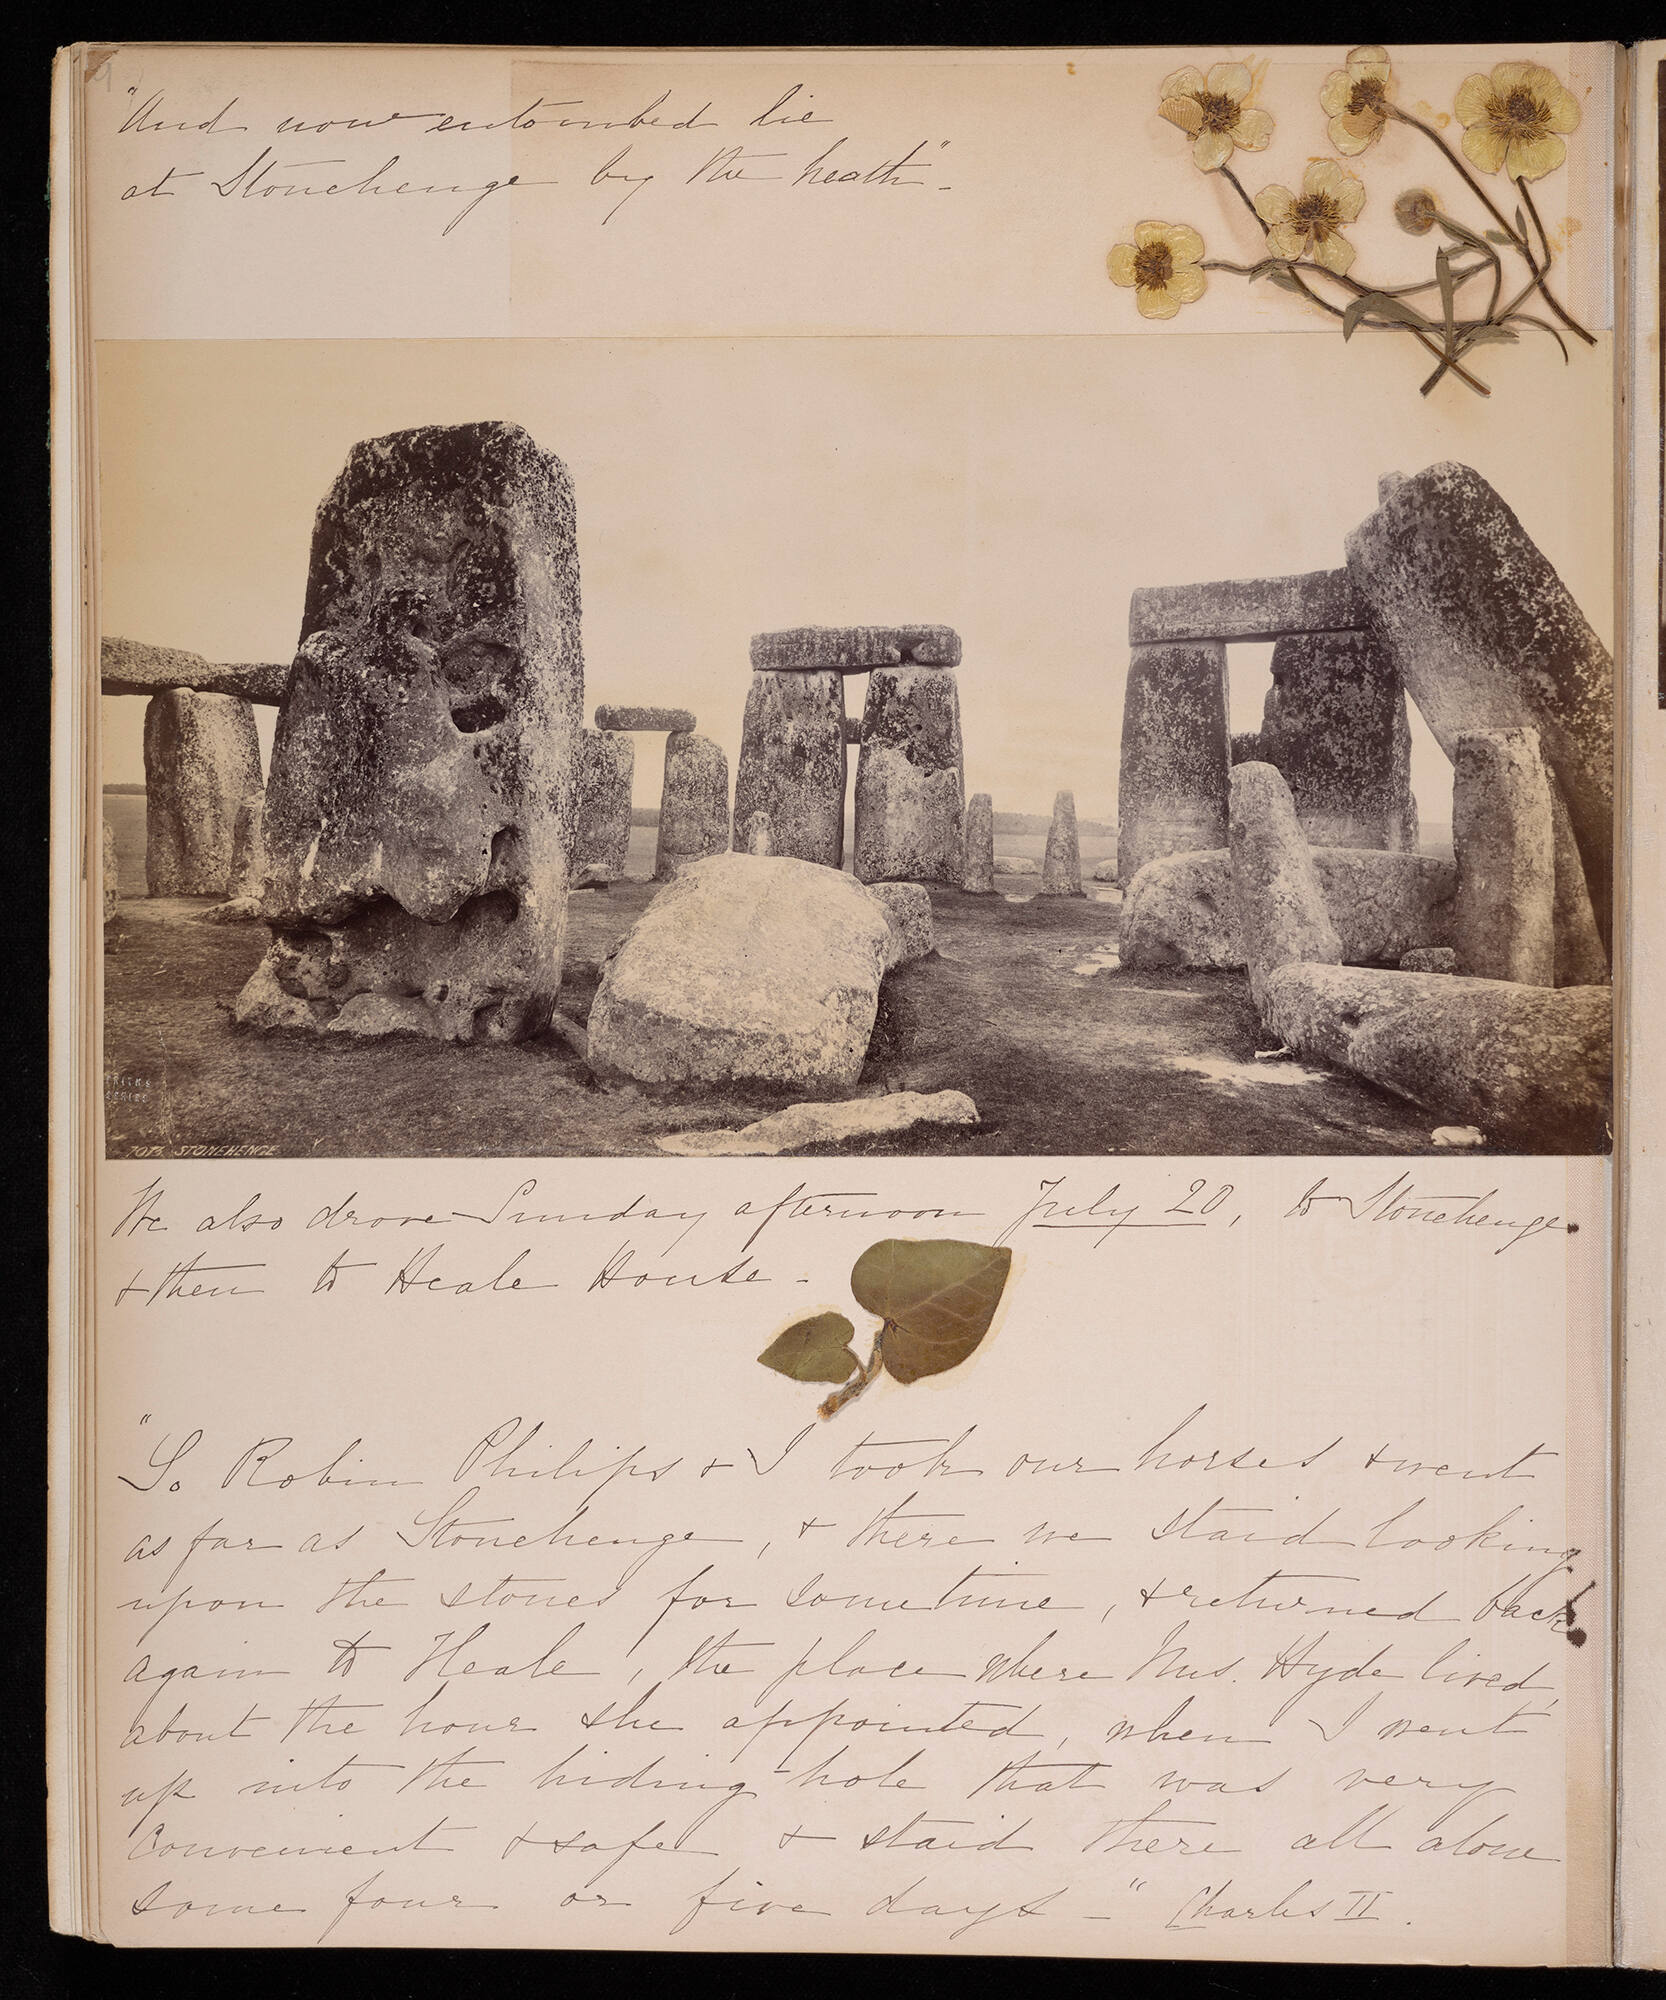 "And now entombed lie
at Stonehenge by the heath" -
FRITH'S
SERIES
STONEHENGE
We also drove Sunday afternoon July 20, to Stonehenge
& then to Heale House -
"So Robin Philips & I took our horses & went
as far as Stonehenge, & there we staid looking
upon the stones for some time, & returned back
again to Heale, the place where Mrs. Hyde lived,
about the hour she appointed, when I went
up into the hiding-hole that was very
convenient & safe & staid there all alone
some four or five days -" Charles II.